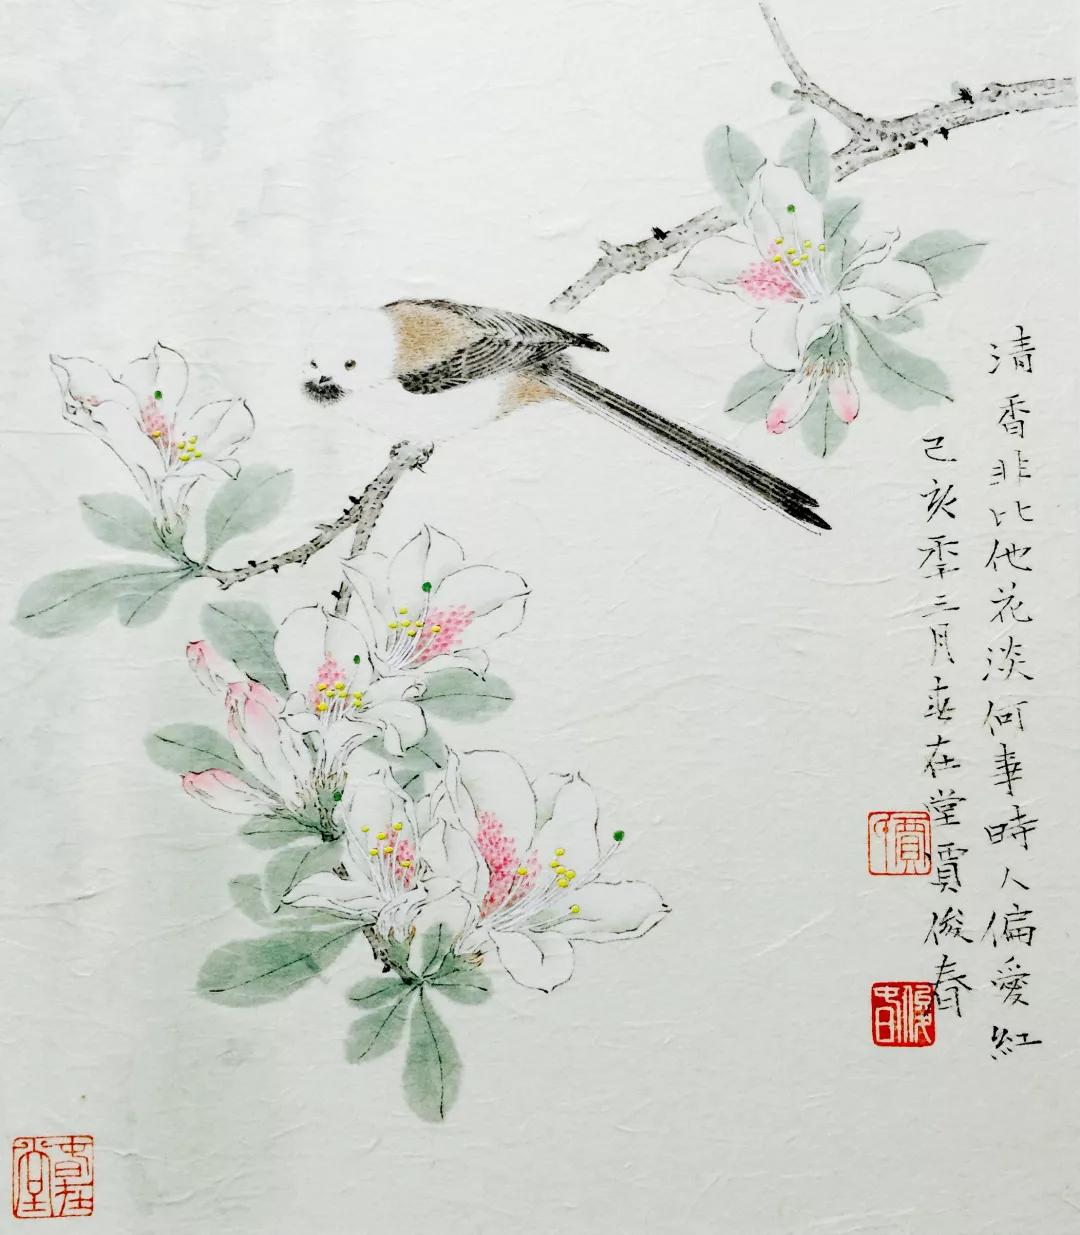 清香非比他花淡何事時人偏愛紅
己亥季三月春在堂賈俊春
賈
俊春
春在堂